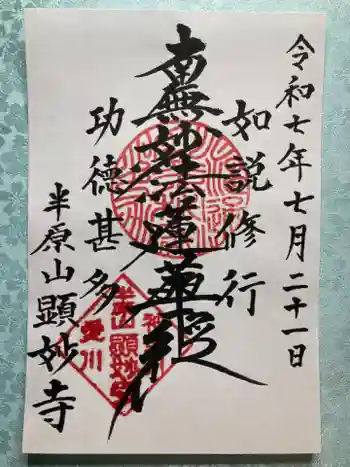 令和七年七月二十一日
如説修行
南無妙法蓮華経
功徳甚多
半原山顕妙寺
半原山顕妙寺
愛川